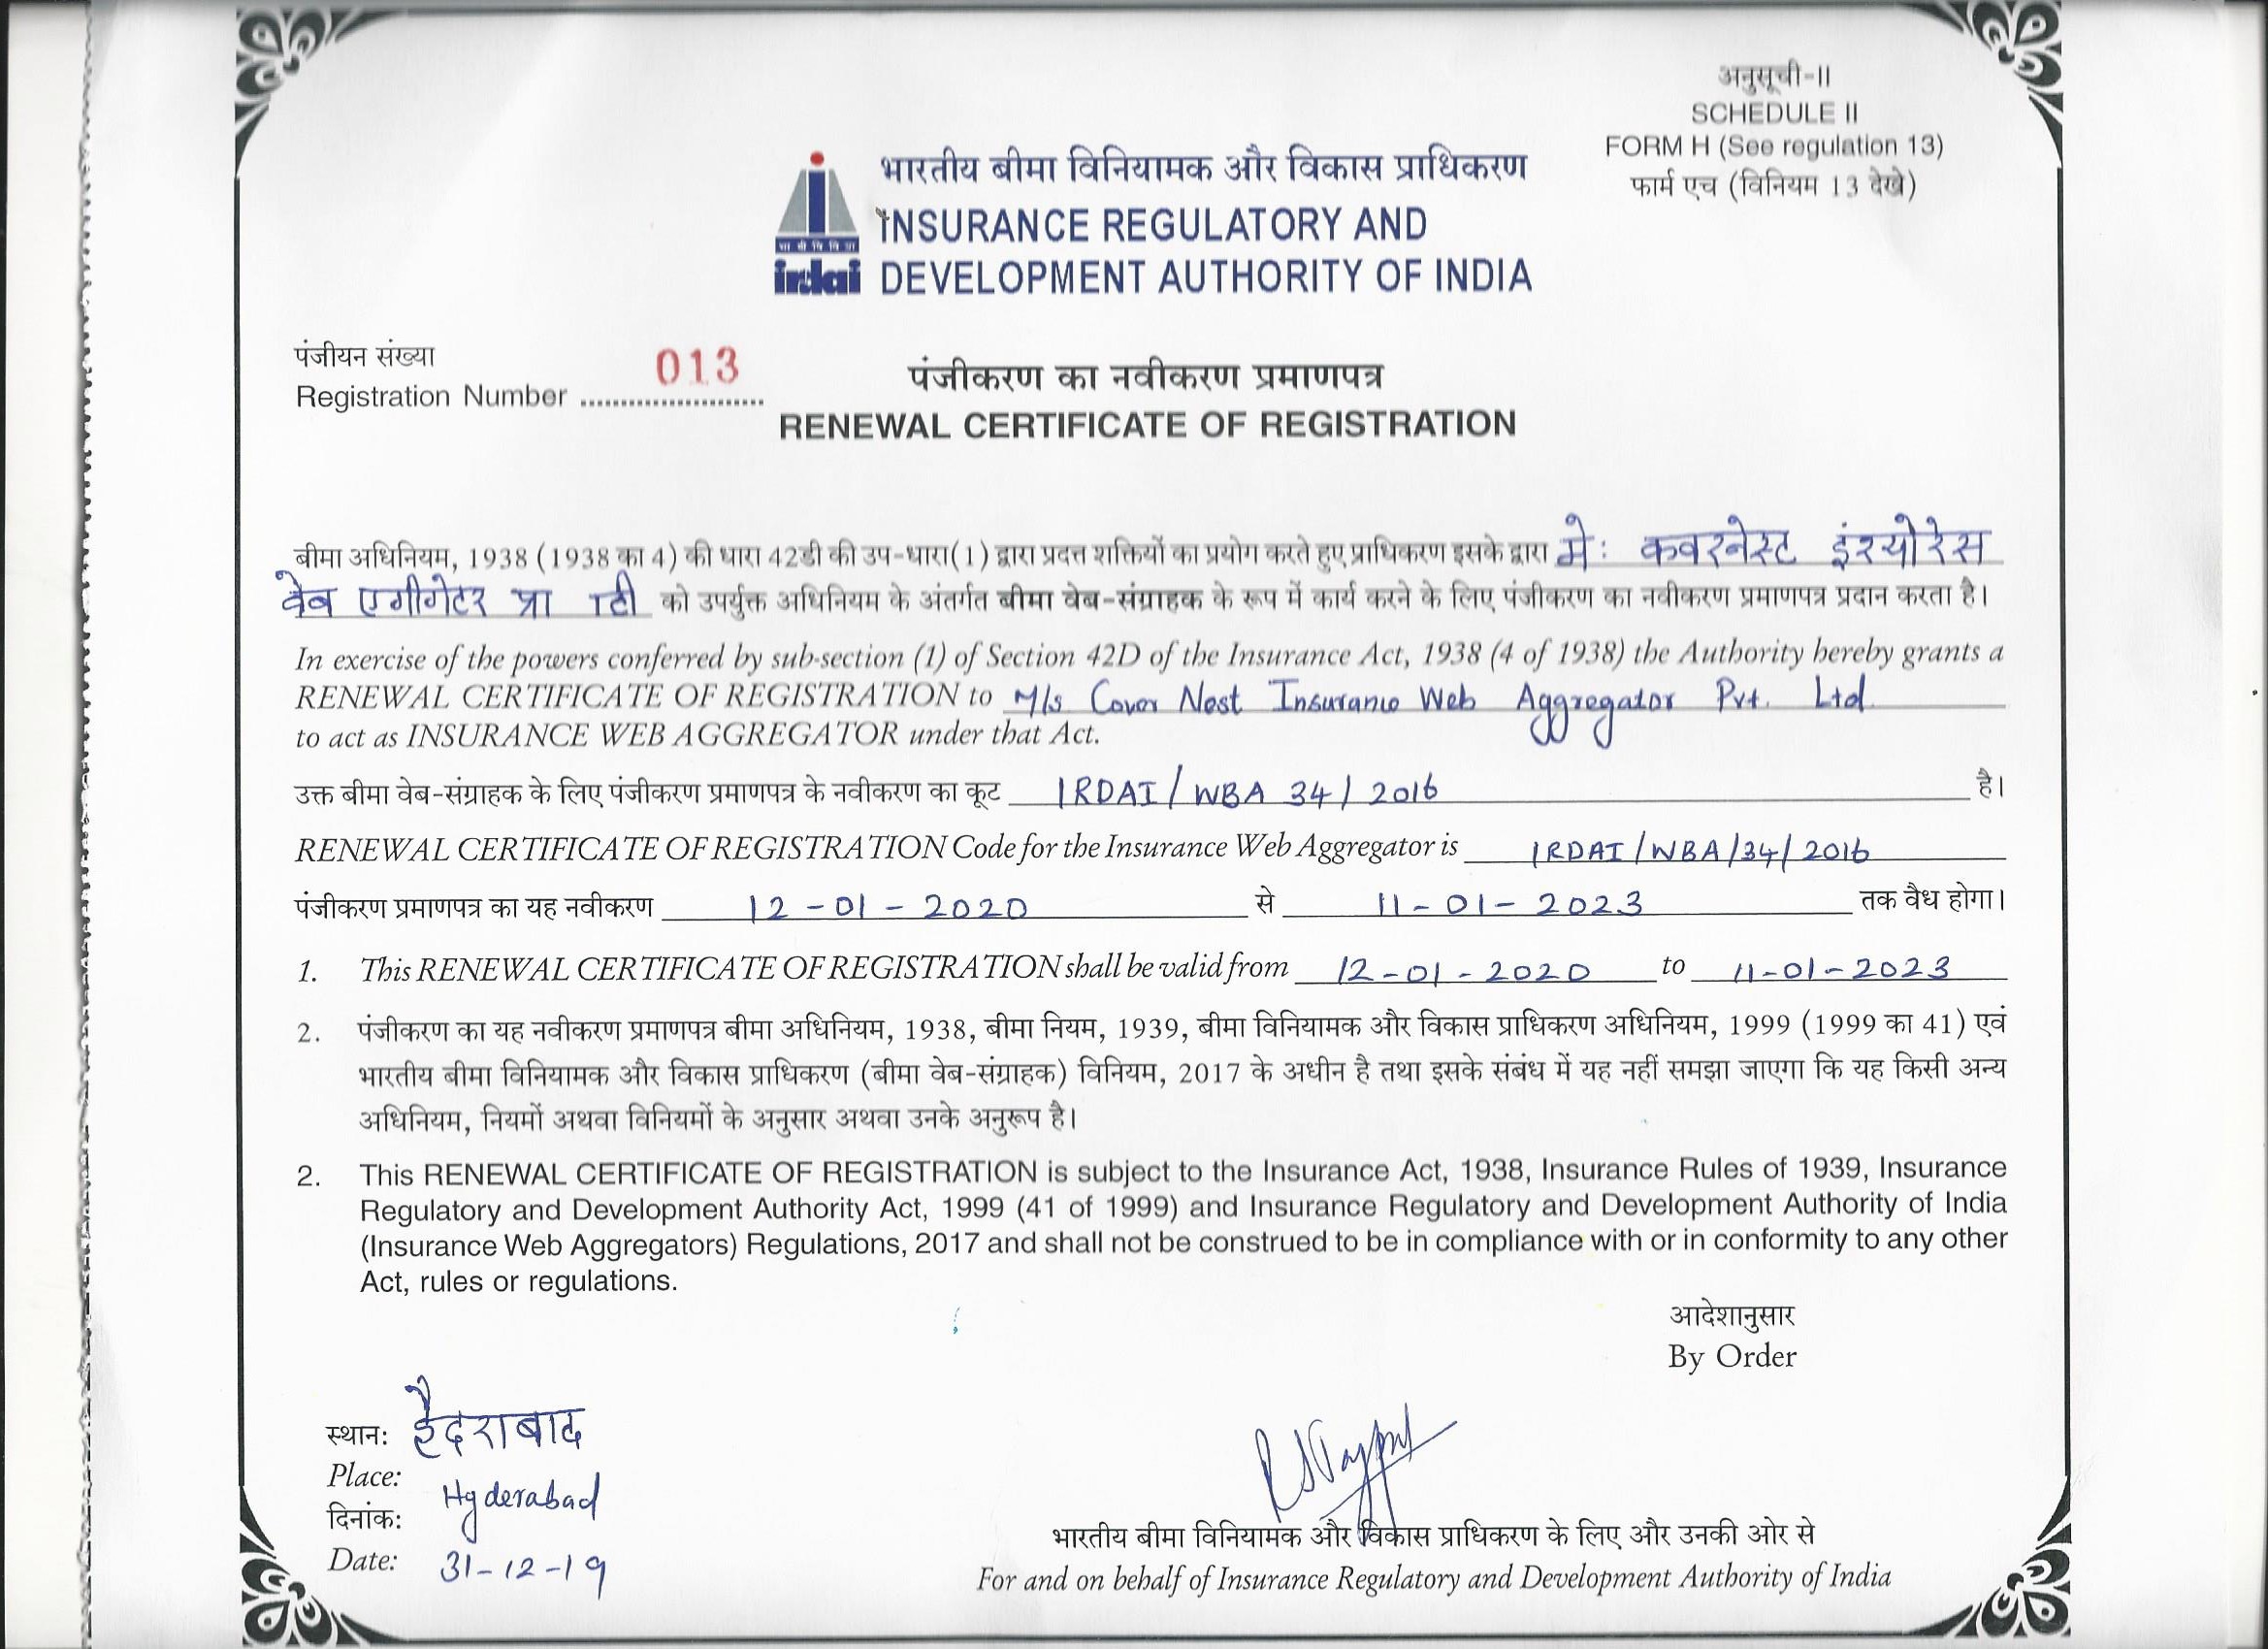 अनुसूची-II
SCHEDULE II
FORM H (See regulation 13)
फार्म एच (विनियम 13 देखे)
भारतीय बीमा विनियामक और विकास प्राधिकरण
INSURANCE REGULATORY AND
DEVELOPMENT AUTHORITY OF INDIA
irdai
पंजीयन संख्या
Registration Number 013
पंजीकरण का नवीकरण प्रमाणपत्र
RENEWAL CERTIFICATE OF REGISTRATION
बीमा अधिनियम, 1938 (1938 का 4) की धारा 42डी की उप-धारा(1) द्वारा प्रदत्त शक्तियों का प्रयोग करते हुए प्राधिकरण इसके द्वारा मे: कवरनेस्ट इंश्योरेस
वेब एगीगेटर प्रा ली को उपर्युक्त अधिनियम के अंतर्गत बीमा वेब-संग्राहक के रूप में कार्य करने के लिए पंजीकरण का नवीकरण प्रमाणपत्र प्रदान करता है।
In exercise of the powers conferred by sub-section (1) of Section 42D of the Insurance Act, 1938 (4 of 1938) the Authority hereby grants a
RENEWAL CERTIFICATE OF REGISTRATION to M/s Cover Nest Insurance Web Aggregator Pvt. Ltd
to act as INSURANCE WEB AGGREGATOR under that Act.
उक्त बीमा वेब-संग्राहक के लिए पंजीकरण प्रमाणपत्र के नवीकरण का कूट IRDAI/WBA 34/2016 है।
RENEWAL CERTIFICATE OF REGISTRATION Code for the Insurance Web Aggregator is IRDAI/WBA/34/2016
पंजीकरण प्रमाणपत्र का यह नवीकरण 12-01-2020 से 11-01-2023 तक वैध होगा।
1. This RENEWAL CERTIFICATE OF REGISTRATION shall be valid from 12-01-2020 to 11-01-2023
2. पंजीकरण का यह नवीकरण प्रमाणपत्र बीमा अधिनियम, 1938, बीमा नियम, 1939, बीमा विनियामक और विकास प्राधिकरण अधिनियम, 1999 (1999 का 41) एवं
भारतीय बीमा विनियामक और विकास प्राधिकरण (बीमा वेब-संग्राहक) विनियम, 2017 के अधीन है तथा इसके संबंध में यह नहीं समझा जाएगा कि यह किसी अन्य
अधिनियम, नियमों अथवा विनियमों के अनुसार अथवा उनके अनुरूप है।
2. This RENEWAL CERTIFICATE OF REGISTRATION is subject to the Insurance Act, 1938, Insurance Rules of 1939, Insurance
Regulatory and Development Authority Act, 1999 (41 of 1999) and Insurance Regulatory and Development Authority of India
(Insurance Web Aggregators) Regulations, 2017 and shall not be construed to be in compliance with or in conformity to any other
Act, rules or regulations.
आदेशानुसार
By Order
स्थान: हैदराबाद
Place: Hyderabad
दिनांक:
Date: 31-12-19
भारतीय बीमा विनियामक और विकास प्राधिकरण के लिए और उनकी ओर से
For and on behalf of Insurance Regulatory and Development Authority of India